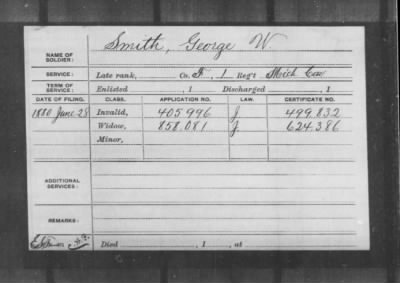 NAME OF SOLDIER: Smith, George W.
SERVICE: Late rank, Co. F, 1 Reg't Mich Cav
TERM OF SERVICE: Enlisted , 1 Discharged , 1
DATE OF FILING. CLASS. APPLICATION NO. LAW. CERTIFICATE NO.
1880 June 28 Invalid, 405 996 J 499.832
Widow, 858.081 J 624.386
Minor,
ADDITIONAL SERVICES:
REMARKS:
Died , 1 , at